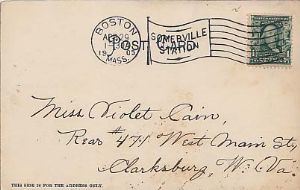 BOSTON
MASS.
SOMERVILLE
STATION
POST CARD
Miss Violet Cain,
Rear #474 West Main St,
Clarksburg, W. Va.
THIS SIDE IS FOR THE ADDRESS ONLY.